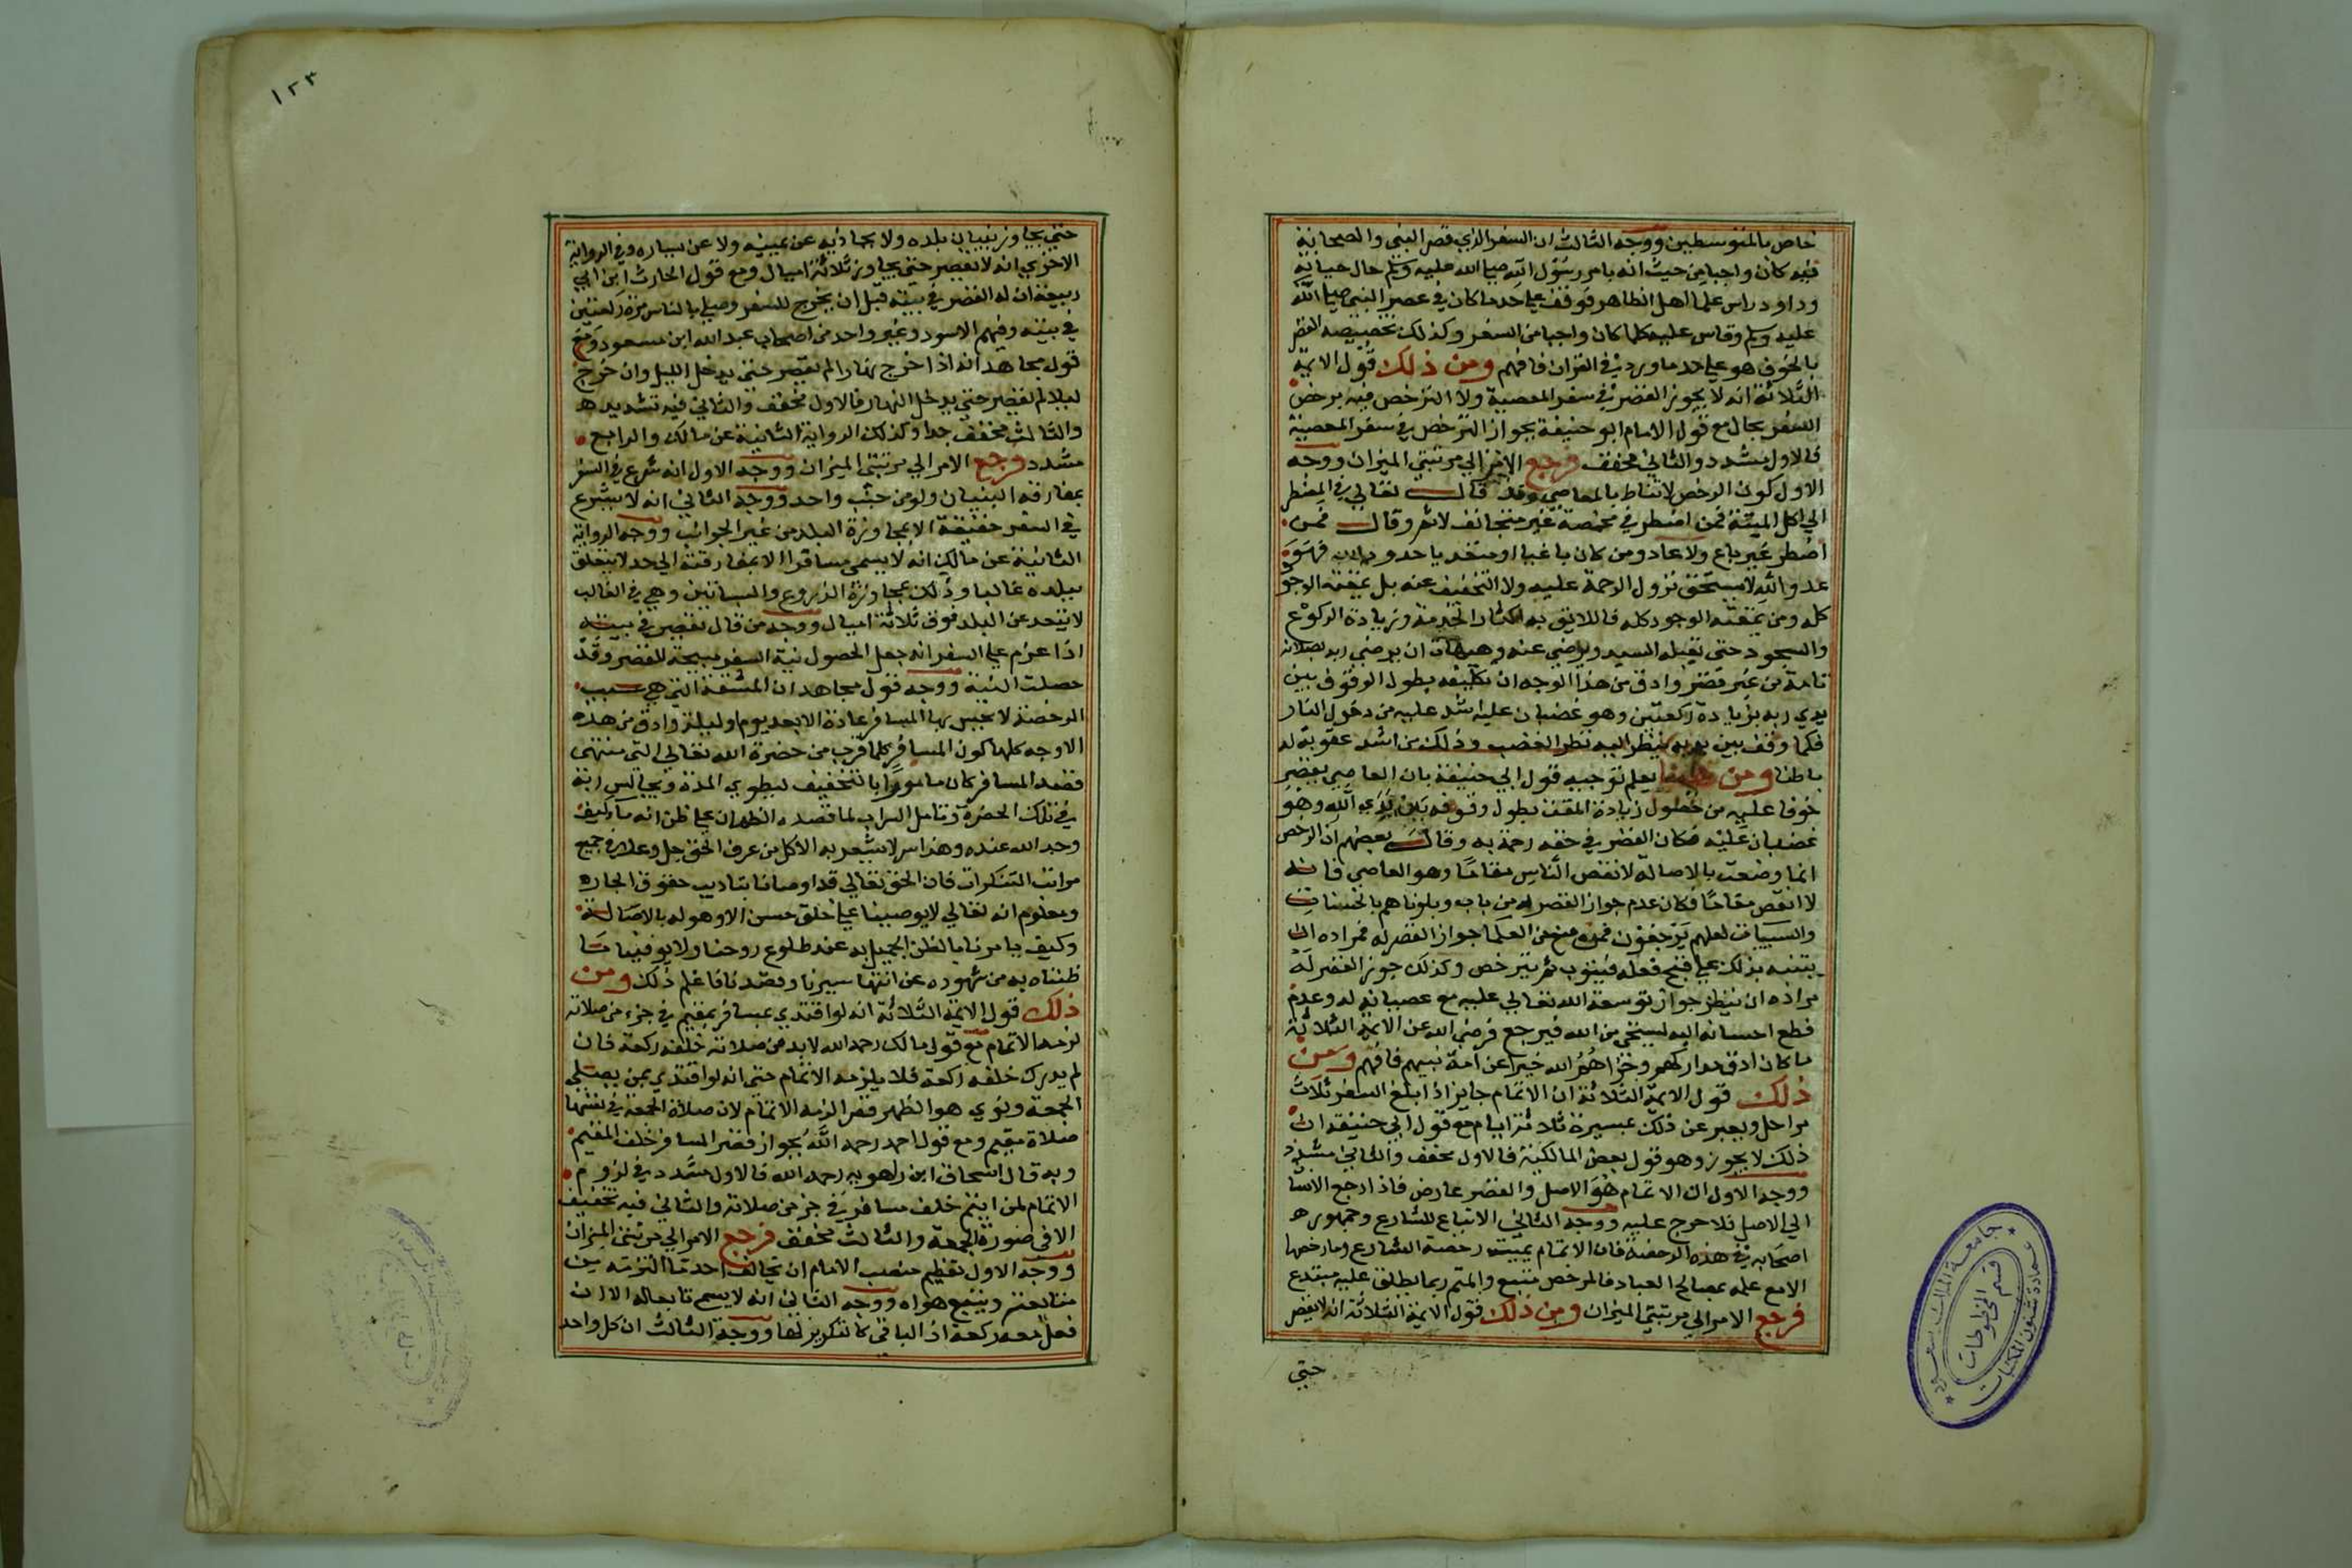 خاص بالمتوسطين ووجه الثالث ان السفر الذي قصر النبي والصحابة
فيه كان واجبا من حيث انه بامر رسول الله صلى الله عليه وسلم حال حياته
وداود راس علما اهل الظاهر فوقف على حد ما كان في عصر النبي صلى الله
عليه وسلم وقاس عليه كلما كان واجبا من السفر وكذلك تخصيصه القصر
بالخوف هو على حد ما ورد في القران فافهم ومن ذلك قول الايمة
الثلاثة انه لا يجوز القصر في سفر المعصية ولا الترخص فيه برخص
السفر بحال مع قول الامام ابو حنيفة بجواز الترخص في سفر المعصية
فالاول مشدد والثاني مخفف فرجع الامر الي مرتبتي الميزان ووجه
الاول كون الرخص لا تناط بالمعاصي وقد قال تعالي في المضطر
الي اكل الميتة فمن اضطر في مخمصة غير متجانف لاثم وقال فمن
اضطر غير باغ ولا عاد ومن كان باغيا او متعديا حدود الله فهو
عدو الله لا يستحق نزول الرحمة عليه ولا التخفيف عنه بل يمقته الوجود
كله ومن يمقته الوجود كله فاللايق به اكثار الخدمة وزيادة الركوع
والسجود حتى يقبله السيد ويرضي عنه وهيهات ان يرضي ربه بصلاته
تامة من غير قصر وادق من هذا الوجه ان تكليفه بطول الوقوف بين
يدي ربه بزيادة ركعتين وهو غضبان عليه اشد عليه من دخول النار
فكلما وقف بين يديه ينظر اليه نظر الغضب وذلك من اشد عقوبة له
باطنا ومن هنا يعلم توجيه قول ابي حنيفة بان العاصي يقصر
خوفا عليه من حصول زيادة المقت بطول وقوفه بين يدي الله وهو
غضبان عليه فكان القصر في حقه رحمة به وقال بعضهم ان الرخص
انما وضعت بالاصالة لانقص الناس مقاما وهو العاصي فانه
لا انقص مقاما فكان عدم جواز القصر له من باب وبلوناهم بالحسنات
والسييات لعلهم يرجعون فمن منع من العلما جواز القصر له فمراده ان
يتنبه بذلك على قبح فعله فيتوب ثم يترخص وكذلك جوز القصر له
مراده ان ينظر جواز توسعة الله تعالي عليه مع عصيانه له وعدم
قطع احسانه اليه ليستحي من الله فيرجع فرضي الله عن الايمة الثلاثة
ما كان ادق مداركهم وجزاهم الله خيرا عن امة نبيهم فافهم ومن
ذلك قول الايمة الثلاثة ان الاتمام جايز اذا بلغ السفر ثلاث
مراحل ويعبر عن ذلك بمسيرة ثلاثة ايام مع قول ابي حنيفة ان
ذلك لا يجوز وهو قول بعض المالكية فالاول مخفف والثاني مشدد
ووجه الاول ان الاتمام هو الاصل والقصر عارض فاذا رجع الانسان
الي الاصل فلا حرج عليه ووجه الثاني الاتباع للشارع وجمهور
اصحابه في هذه الرخصة فان الاتمام يميت رخصة الشارع وما رخصها
الا مع علمه بمصالح العباد فالمرخص متبع والمتم ربما يطلق عليه مبتدع
فرجع الامر الي مرتبتي الميزان ومن ذلك قول الايمة الثلاثة انه لا يقصر
حتي
جامعة الملك سعود
عمادة شئون المكتبات
قسم المخطوطات
١٢٣
حتى يجاوز بنيان بلده ولا يحاذيه عن يمينه ولا عن يساره وفي الرواية
الاخري انه لا يقصر حتى يجاوز ثلاثة اميال ومع قول الحارث ابن ابي
ربيعة ان له القصر في بيته قبل ان يخرج للسفر وصلى بالناس مرة ركعتين
في بيته وفيهم الاسود وغير واحد من اصحاب عبد الله ابن مسعود ومع
قول مجاهد انه اذا خرج نهارا لم يقصر حتى يدخل الليل وان خرج
ليلا لم يقصر حتي يدخل النهار فالاول مخفف والثاني فيه تشديد
والثالث مخفف جدا وكذلك الرواية الثانية عن مالك والرابع
مشدد فرجع الامر الي مرتبتي الميزان ووجه الاول انه شرع في السفر
بمفارقة البنيان ولو من جنب واحد ووجه الثاني انه لا يشرع
في السفر حقيقة الا بمجاوزة البلد من غير الجوانب ووجه الرواية
الثانية عن مالك انه لا يسمى مسافرا الا بمفارقته الي حد لا يتعلق
ببلده غالبا وذلك بمجاوزة الزروع والبساتين وهي في الغالب
لا تبعد عن البلد فوق ثلاثة اميال ووجه من قال يقصر في بيته
اذا عزم على السفر انه جعل الحصول نية السفر مبيحة للقصر وقد
حصلت النية ووجه قول مجاهد ان المشقة التي هي سبب
الرخصة لا يحس بها المسافر عادة الا بعد يوم او ليلة وادق من هذه
الاوجه كلها كون المسافر كلما قرب من حضرة الله تعالي التى منتهى
قصد المسافر كان مامورا بالتخفيف ليطوي المدة ويجالس ربه
في تلك الحضرة وتامل السراب لما قصده الظمان على ظن انه ما كيف
وجد الله عنده وهذا سر لا يشعر به الا كل من عرف الحق جل وعلا في جميع
مراتب التنكرات فان الحق تعالي قد اوصانا بتاديب حقوق الجار
ومعلوم انه تعالي لا يوصينا على خلق حسن الا وهو له بالاصالة
وكيف يامرنا بالظن الجميل به عند طلوع روحنا ولا يوفينا ما
ظنناه به من شهوده عن انتها سيرنا وقصدنا فاعلم ذلك ومن
ذلك قول الايمة الثلاثة انه لو اقتدي مسافر بمقيم في جزء من صلاته
لزمه الاتمام مع قول مالك رحمه الله لا بد من صلاته خلفه ركعة فان
لم يدرك خلفه ركعة فلا يلزمه الاتمام حتى انه لو اقتدي بمن يصلي
الجمعة ونوي هو الظهر قصرا لزمه الاتمام لان صلاة الجمعة في نفسها
صلاة مقيم ومع قول احمد رحمه الله بجواز قصر المسافر خلف المقيم
وبه قال اسحاق ابن راهويه رحمه الله فالاول مشدد في لزوم
الاتمام لمن ايتم خلف مسافر في جز من صلاته والثاني فيه تخفيف
الا في صورة الجمعة والثالث مخفف فرجع الامر الي مرتبتي الميزان
ووجه الاول تعظيم منصب الامام ان يخالف احد ما التزمه من
متابعته ويتبع هواه ووجه الثاني انه لا يسمى تابعا له الا ان
فعل معه ركعة اذ الباقي كالتكرير لها ووجه الثالث ان كل واحد